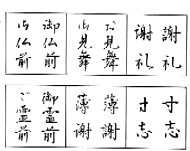 謝礼
謝礼
お見舞
お見舞
御仏前
御仏前
寸志
寸志
薄謝
薄謝
御霊前
ご霊前